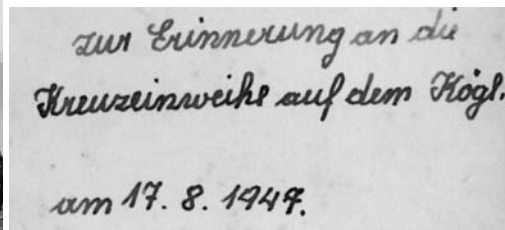 zur Erinnerung an die
Kreuzeinweihe auf dem Kögl.
am 17. 8. 1947.